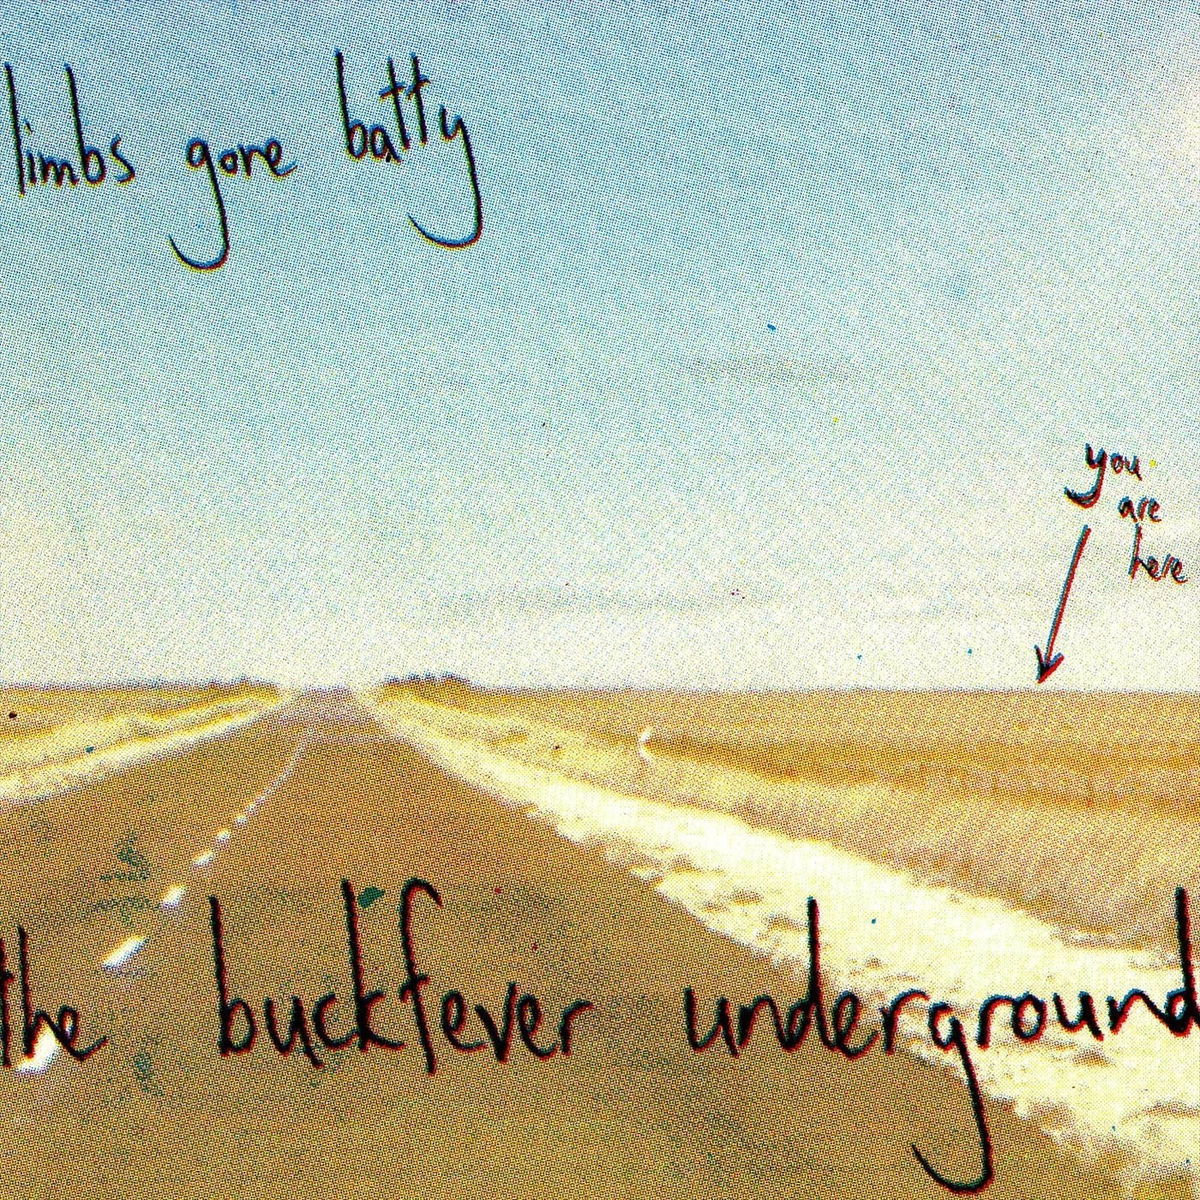 limbs gone batty
you
are
here
the buckfever underground